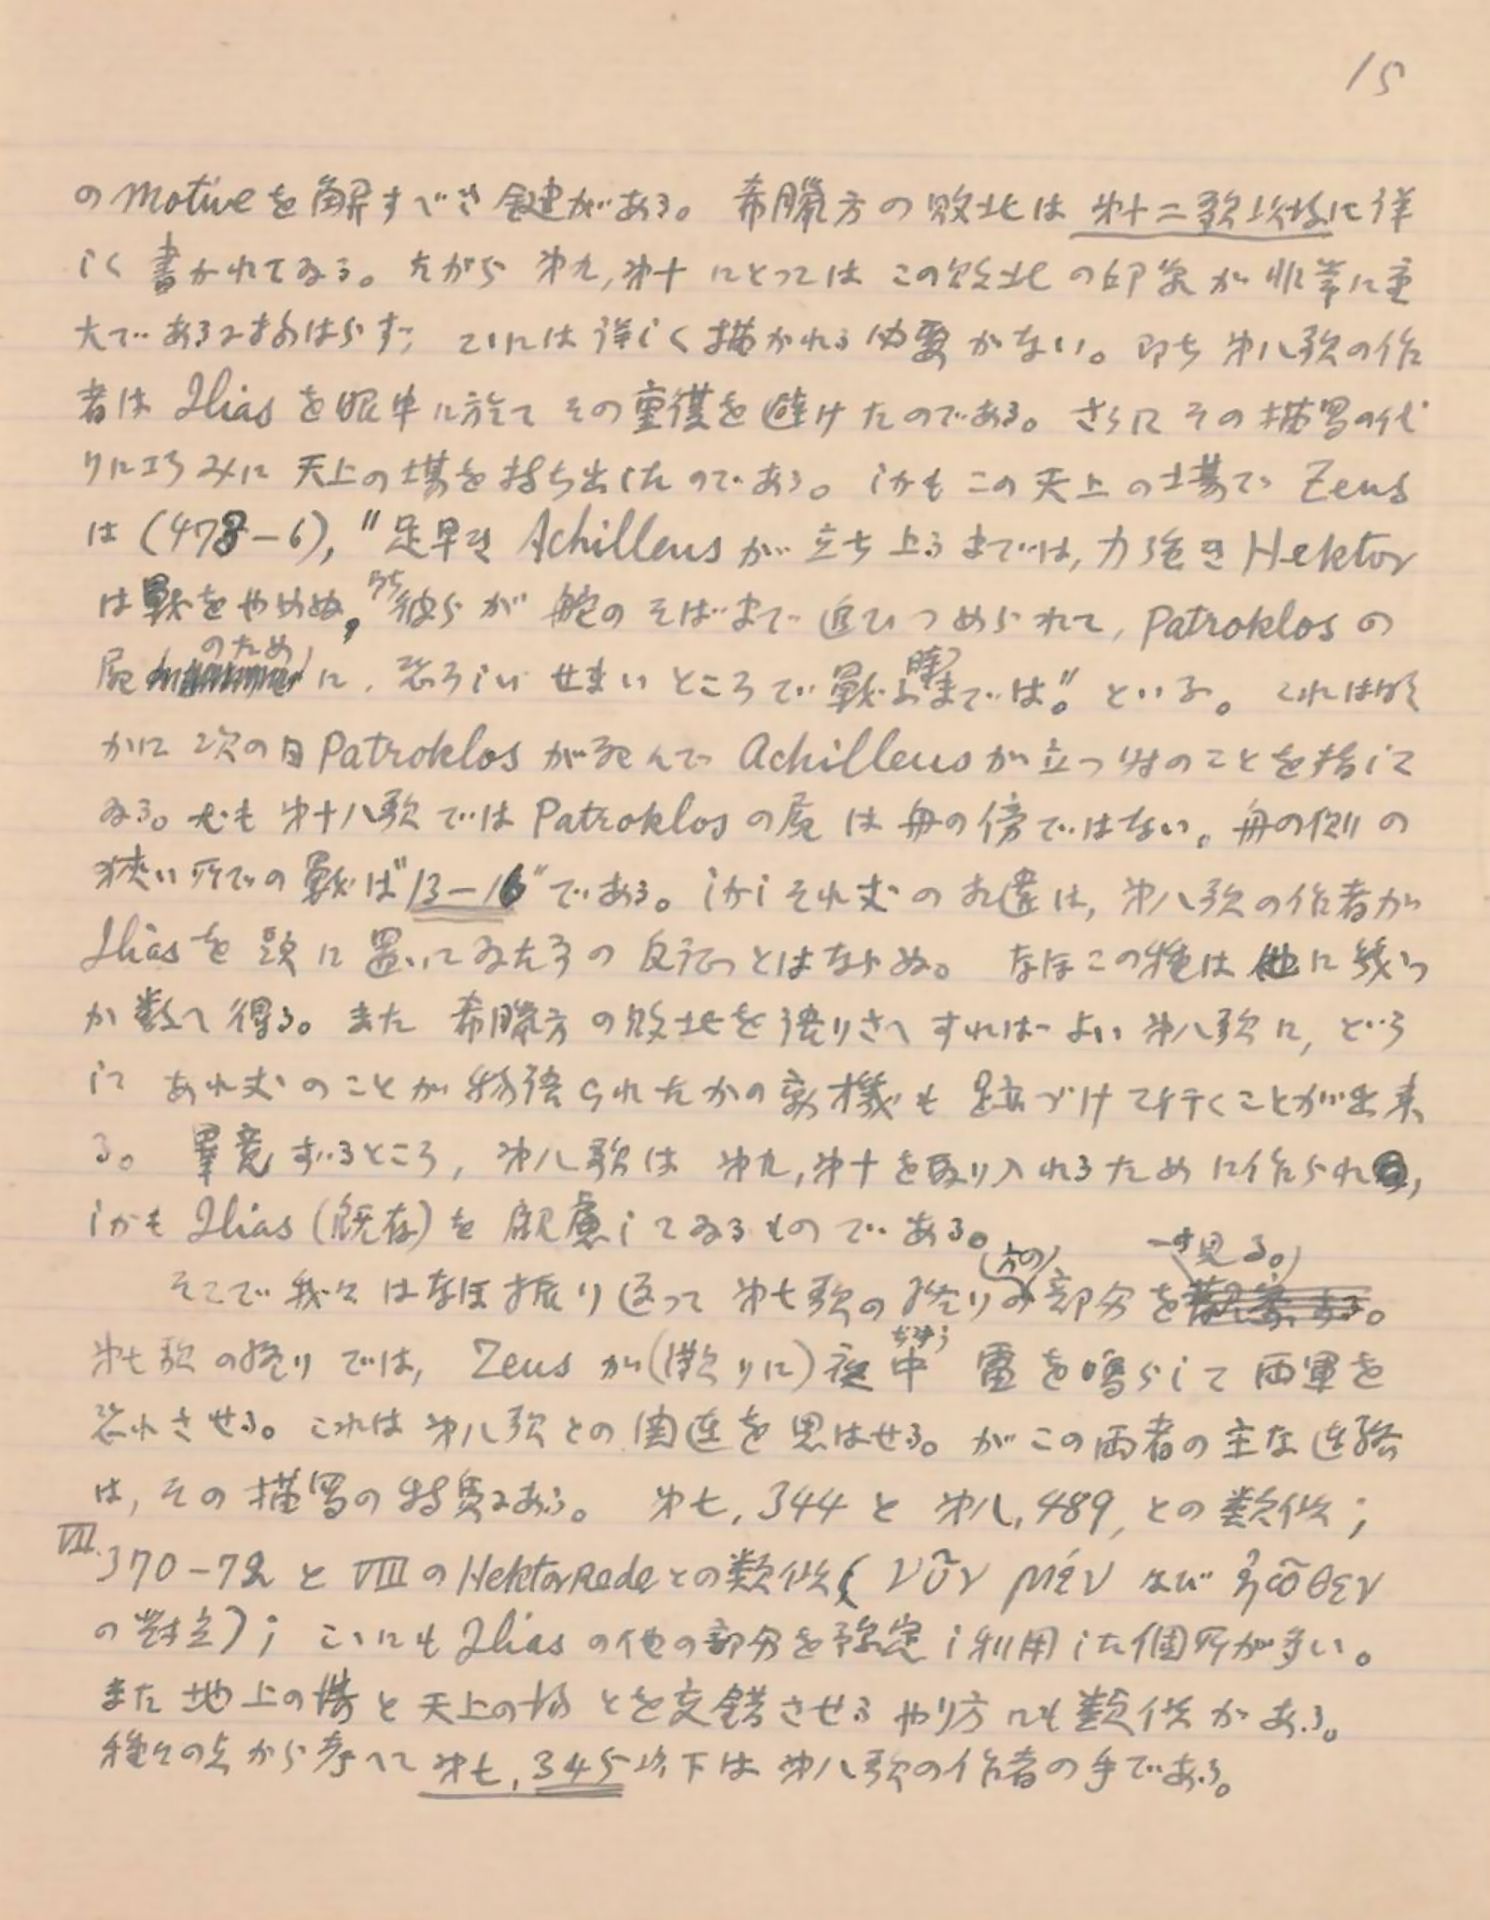 15
のmotiveを解すべき鍵がある。希臘方の敗北は第十二歌以後に詳
しく書かれてゐる。だから第九,第十にとつてはこの敗北の印象が非常に重
大であるに拘はらず、こゝには詳しく描かれる必要がない。即ち第八歌の作
者はIliasを眼中に於てその重複を避けたのである。さらにその描写の代
りに巧みに天上の場を持ち出したのである。しかもこの天上の場でZeus
は(473-6),"足早きAchilleusが立ち上るまでは,力強きHektor
は戦をやめぬ,うち彼らが舩のそばまで追ひつめられて,Patroklosの
屍のために,恐ろしいせまいところで戦ふ時までは。"といふ。これは明ら
かに次の日Patroklosが死んでAchilleusが立つ時のことを指して
ゐる。尤も第十八歌ではPatroklosの屍は舟の傍ではない。舟の側の
狭い所での戦は"13-16"である。しかしそれ丈の相違は,第八歌の作者が
Iliasを頭に置いてゐたことの反証とはならぬ。なほこの種は他に幾つ
か数へ得る。また希臘方の敗北を語りさへすればよい第八歌に,どう
してあれ丈のことが物語られたかの動機も跡づけて行くことが出来
る。畢竟ずるところ,第八歌は第九,第十を取り入れるために作られ,
しかもIlias(既存)を顧慮してゐるものである。
そこで我々はなほ振り返つて第七歌の終りの方の部分を一寸見る。
第七歌の終りでは,Zeusが(徴りに)夜中ぢゆう雷を鳴らして両軍を
恐れさせる。これは第八歌との関連を思はせる。がこの両者の主な連絡
は,その描写の特質にある。第七,344と第八,489,との類似;
VII.370-72とVIIIのHektorRedeとの類似(νῦν μέν 及び ἠῶθεν
の対立);こゝにもIliasの他の部分を予定し利用した個所が多い。
また地上の場と天上の場とを交錯させるやり方にも類似がある。
種々の点から考へて第七,345以下は第八歌の作者の手である。